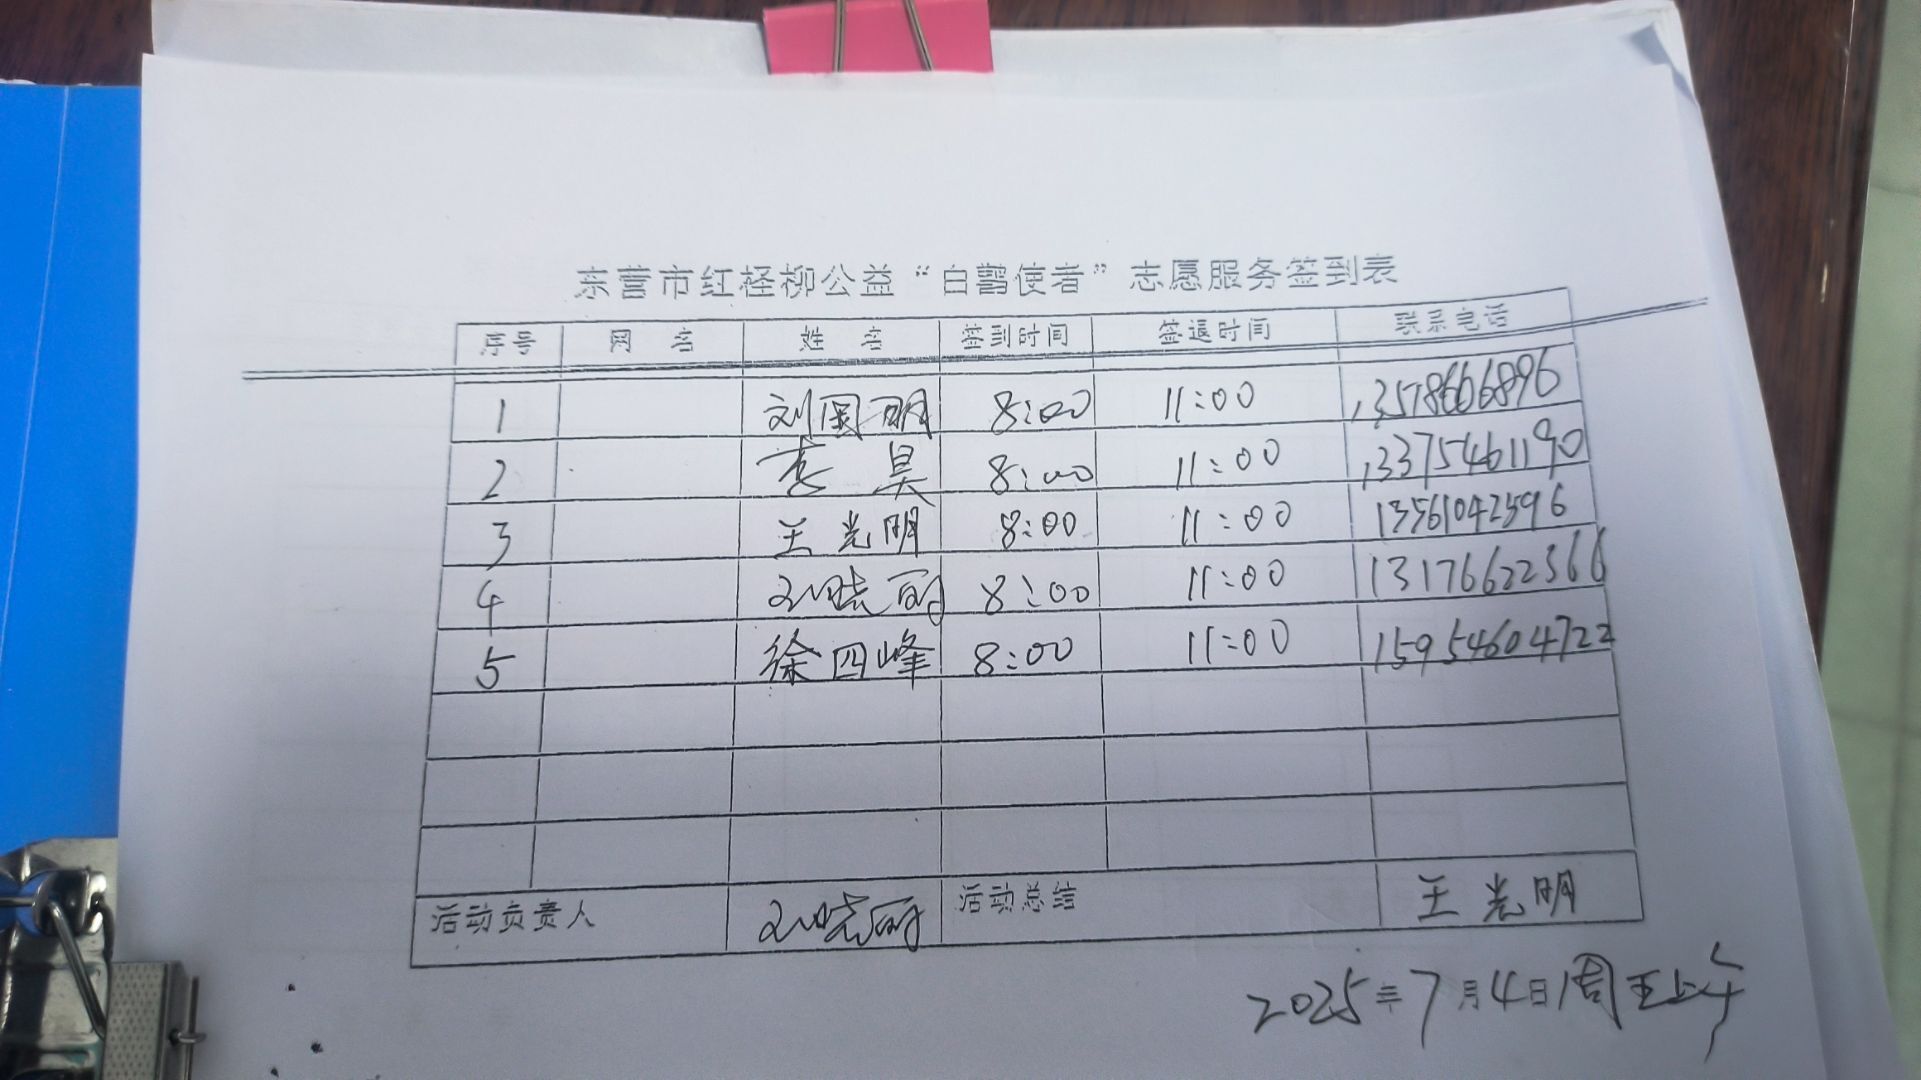 东营市红柽柳公益“白鹳使者”志愿服务签到表
序号 网名 姓名 签到时间 签退时间 联系电话
1 刘国明 8:00 11:00 13578606896
2 李昊 8:00 11:00 13375461190
3 王光明 8:00 11:00 13561042596
4 刘晓丽 8:00 11:00 13176622366
5 徐四峰 8:00 11:00 15954604722
活动负责人 刘晓丽 活动总结 王光明
2025年7月4日周五上午